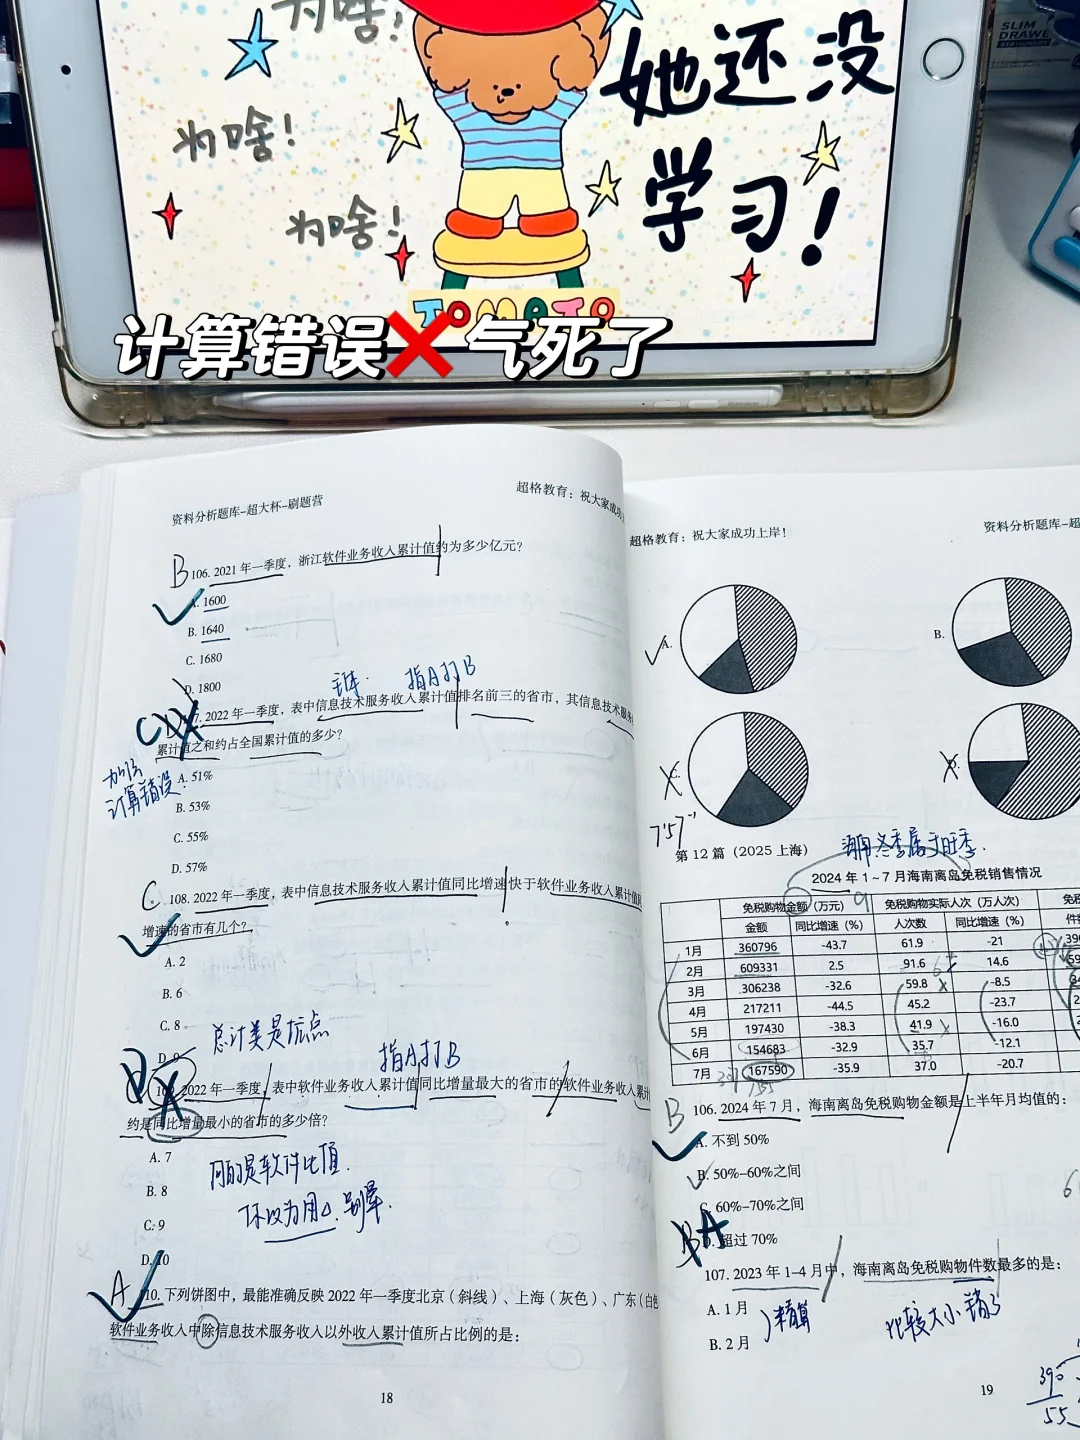 为啥!
为啥!
为啥!
她还没
学习!
TOMATO
SLIM
DRAWE
计算错误❌气死了
资料分析题库-超大杯-刷题营
超格教育：祝大家成功
B 106. 2021 年一季度，浙江软件业务收入累计值约为多少亿元？
A. 1600
B. 1640
C. 1680
D. 1800
指A打B
C
2022 年一季度，表中信息技术服务收入累计值排名前三的省市，其信息技术服务
累计值之和约占全国累计值的多少？
加法
计算错误
A. 51%
B. 53%
C. 55%
D. 57%
C 108. 2022 年一季度，表中信息技术服务收入累计值同比增速快于软件业务收入累计值
增速的省市有几个？
A. 2
B. 6
C. 8
D. 9
总计类是坑点
指A打B
2022 年一季度，表中软件业务收入累计值同比增量最大的省市的软件业务收入累计
约是同比增量最小的省市的多少倍？
A. 7
B. 8
C. 9
D. 10
问的是软件比值
不以为用△，别晕.
A 110. 下列饼图中，最能准确反映 2022 年一季度北京（斜线）、上海（灰色）、广东（白色
软件业务收入中除信息技术服务收入以外收入累计值所占比例的是：
18
超格教育：祝大家成功上岸！
资料分析题库-超
A.
B.
C.
D.
7'57"
第 12 篇（2025 上海）
海南冬季属于旺季.
2024 年 1~7 月海南离岛免税销售情况
免税购物金额（万元） 免税购物实际人次（万人次） 免税
金额 同比增速（%） 人次数 同比增速（%） 件
1月 360796 -43.7 61.9 -21
2月 609331 2.5 91.6 14.6
3月 306238 -32.6 59.8 -8.5
4月 217211 -44.5 45.2 -23.7
5月 197430 -38.3 41.9 -16.0
6月 154683 -32.9 35.7 -12.1
7月 167590 -35.9 37.0 -20.7
B 106. 2024 年 7 月，海南离岛免税购物金额是上半年月均值的：
A. 不到 50%
B. 50%-60%之间
C. 60%-70%之间
D. 超过 70%
B A
107. 2023 年 1-4 月中，海南离岛免税购物件数最多的是：
A. 1 月
B. 2 月
精算
比较大小错了
390
55
19